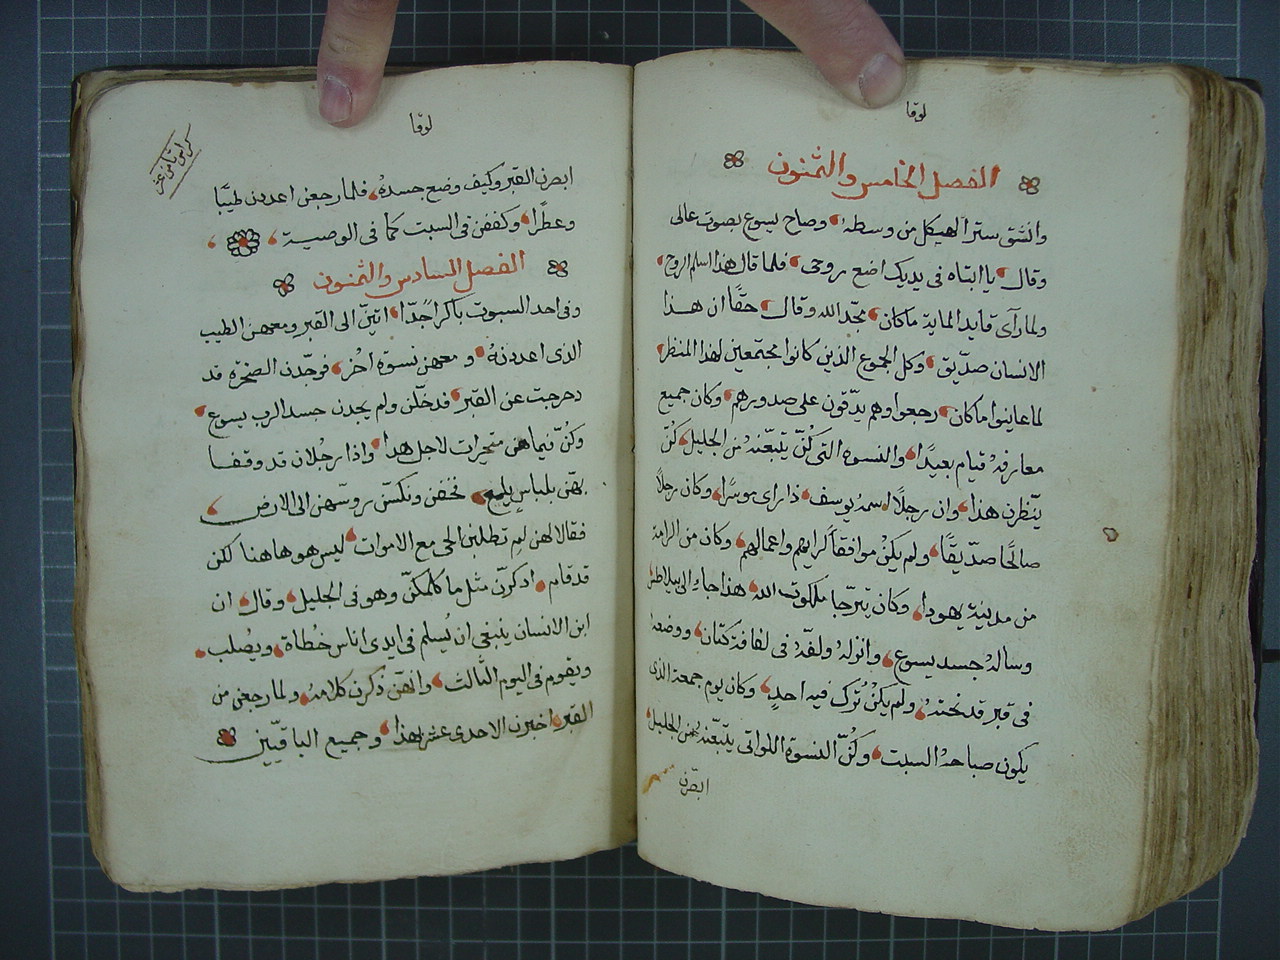 لوقا
الفصل الخامس والثمنون
وانشق ستر الهيكل من وسطه وصاح يسوع بصوت عالى
وقال يا ابتاه فى يديك اضع روحى فلما قال هذا اسلم الروح
ولما رآى قايد الماية ما كان مجّد الله وقال حقًّا ان هذا
الانسان صدّيق وكل الجموع الذين كانوا مجتمعين لهذا المنظر
لما عاينوا ما كان رجعوا وهم يدّقون على صدورهم وكان جميع
معارفهُ قيام بعيدًا والنسوه التى كُنّ يتبعّنه من الجليل كُنّ
ينّظرن هذا وان رجلًا اسمهُ يوسف ذا راى موسرًا وكان رجلًا
صالحًا صدّيقًا ولم يكنْ موافقًا لرايهم واعمالهم وكان من الرامة
من مدينة يهودا وكان يترّجا ملكوت الله هذا جاء الى بيلاطس
وسالهُ جسد يسوع وانزلهُ ولفّهُ فى لفافة كتّان ووضعهُ
فى قبر قد نحتهُ ولم يكنْ تُرك فيه احدٍ وكان يوم جمعة الذى
يكون صباحهُ السبت وكُنّ النسوة اللواتى يتبعّنه من الجليل
ابصرن
لوقا
كراس ثامن عشر
ابصرن القبر وكيف وضع جسدهُ فلما رجعن اعددن طيبًا
وعطرًا وكففن فى السبت كما فى الوصية
الفصل السادس والثمنون
وفى احد السبوت باكرًا جدّا اتينّ الى القبر ومعهن الطيب
الذى اعددنهُ ومعهن نسوة اُخر فوجّدن الصخرة قد
دحرجت عن القبر فدخلّن ولم يجدن جسد الرب يسوع
وكُنّ فيما هن متحيرات لاجل هدا واذا رجُلان قد وقفا
بهّن بلباسٍ يلمع فخفن ونكسّن روسّهن الى الارض
فقالا لهن لم تطلبن الحى مع الاموات ليس هو هاهنا لكن
قد قام اذكرّن مثل ما كلمكنّ وهو فى الجليل وقال ان
ابن الانسان ينبغى ان يُسلم فى ايدى اناس خُطاة ويُصلب
ويقوم فى اليوم الثالث وانهّن ذكرن كلامهُ ولما رجعن من
القبر اخبرن الاحدى عشر بهذا وجميع الباقيّين